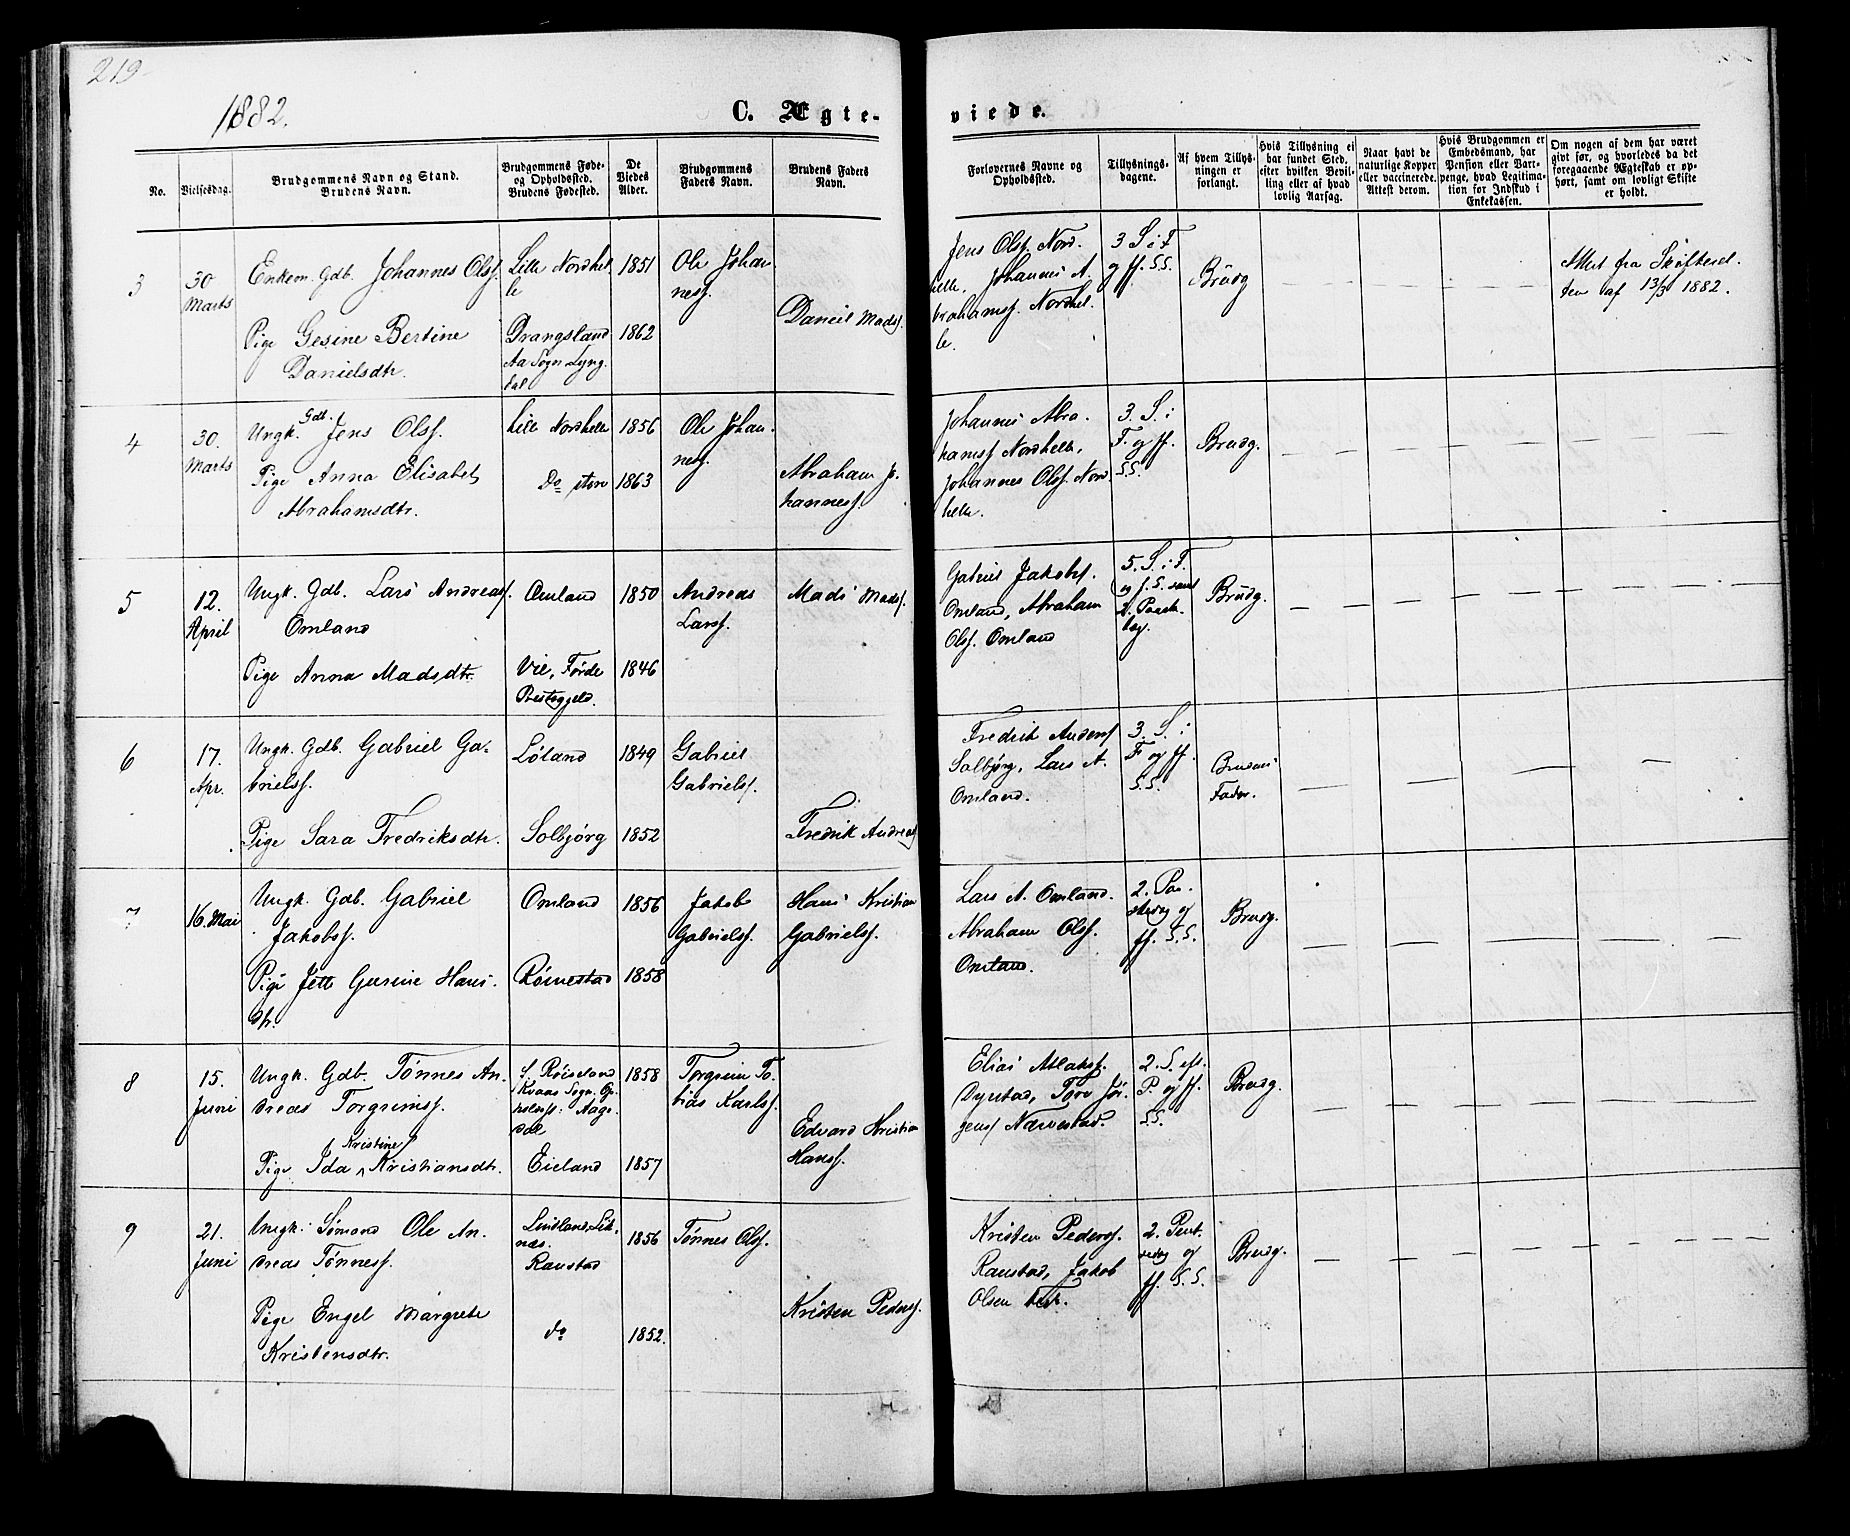 219
1882.
C. Ægte-
viede.
No.
Vielsesdag.
Brudgommens Navn og Stand.
Brudens Navn.
Brudgommens Føde-
og Opholdssted.
Brudens Fødested.
De
Viedes
Alder.
Brudgommens
Faders Navn.
Brudens Faders
Navn.
Forlovernes Navne og
Opholdssted.
Tillysnings-
dagene.
Af hvem Tillys-
ningen er
forlangt.
Hvis Tillysning ei
har fundet Sted,
efter hvilken Bevil-
ling eller af hvad
lovlig Aarsag.
Naar havt de
naturlige Kopper
eller vaccinerede.
Attest derom.
Hvis Brudgommen er
Embedsmand, har
Pension eller Vart-
penge, hvad Legitima-
tion for Indskud i
Enkekassen.
Om nogen af dem har været
givt før, og hvorledes da det
foregaaende Ægteskab er op-
hørt, samt om lovligt Skifte
er holdt.
3
30
Marts
Enkem. Gdb. Johannes Olsf.
Pige Gesine Bertine
Danielsdtr.
Lille Nordhel
le
Drangsland
Aa Sogn Lyng
dal
1851
1862
Ole Johan
nesf.
Daniel Madsf.
Jens Olsf. Nord.
helle, Johannes A.
brahamsf. Nordhel.
le.
3 S. i F
og ff. S.S.
Brudg
Attest fra Skifteret
ten af 13/3 1882.
4
30.
Marts
Gdb.
Ungk. Jens Olsf.
Pige Anna Elisabet
Abrahamsdtr.
Lille Nordhelle
Do store
1856
1863
Ole Johan.
nesf.
Abraham Jo.
hannesf.
Johannes Abra.
hamsf Nordhelle,
Johannes Olsf. Nord
helle.
3. S. i
F. og ff.
S.S.
Brudg.
5
12.
April
Ungk. Gdb. Lars Andreasf.
Omland
Pige Anna Madsdtr.
Omland
Vie, Førde
Præstegjeld.
1850
1846
Andreas
Larsf.
Mads Madsf.
Gabriel Jakobsf.
Omland, Abraham
Olsf. Omland
5. S. i F.
og f. S. samt
2. Paask
dag.
Brudg.
6
17.
Apr.
Ungk. Gdb. Gabriel Ga-
brielsf.
Pige Sara Fredriksdtr.
Løland
Solbjørg
1849
1852
Gabriel
Gabrielsf.
Fredrik Andreasf
Fredrik Andersf
Solbjørg, Lars A.
Omland.
3. S. i
F og ff.
S.S.
Brudens
Fader.
7
16. Mai
Ungk. Gdb. Gabriel
Jakobsf.
Pige Jette Gurine Hans-
dtr.
Omland
Rømestad
1856
1858
Jakob
Gabrielsf.
Hans Kristian
Gabrielsf.
Lars A. Omland.
Abraham Olsf.
Omland.
2. Paa-
skedag og
ff. S.S.
Brudg.
8
15.
Juni
Ungk. Gdb. Tønnes An-
dreas Torgrimsf.
Kristine
Pige Ida Kristiansdtr.
Røiseland
Kvaas Sogn,
dal
Eieland
1858
1857
Torgrim To-
bias Karlsf.
Edvard Kristian
Hansf.
Elias Atlaksf.
Dyrstad, Tore Jør-
gensf Nævestad.
2. S. eft.
P. og ff.
S.S.
Brudg.
9
21.
Juni
Ungk. Sømand Ole An-
dreas Tønnesf.
Pige Engel Margrete
Kristensdtr.
Lindland, Lik-
næs.
Ranstad
do
1856
1852.
Tønnes Olsf.
Kristen Pedersf.
Kristen Pedersf.
Ranstad, Jakob
Olsen
2. Pint-
sedag og
ff. S.S.
Brudg.